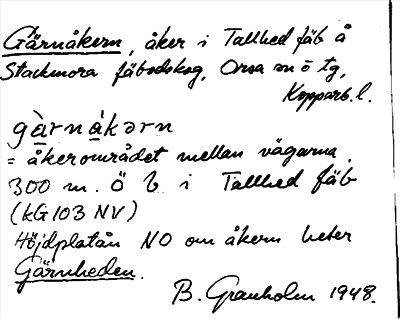 Gärnåkern, åker i Tallhed fäb å
Stackmora fäbodskog, Orsa sn ö tg,
Kopparb. l.
gàrnákərn
= åkerområdet mellan vägarna
300 m. Ö b. i Tallhed fäb
(kG103 NV)
Höjdplatån NO om åkern heter
Gärnheden.
B. Granholm 1948.